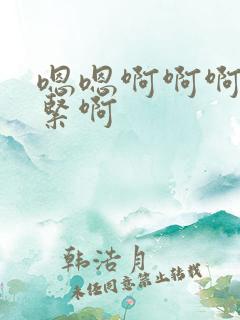 嗯嗯啊啊啊
紧啊
韩浩月
未经同意禁止转载